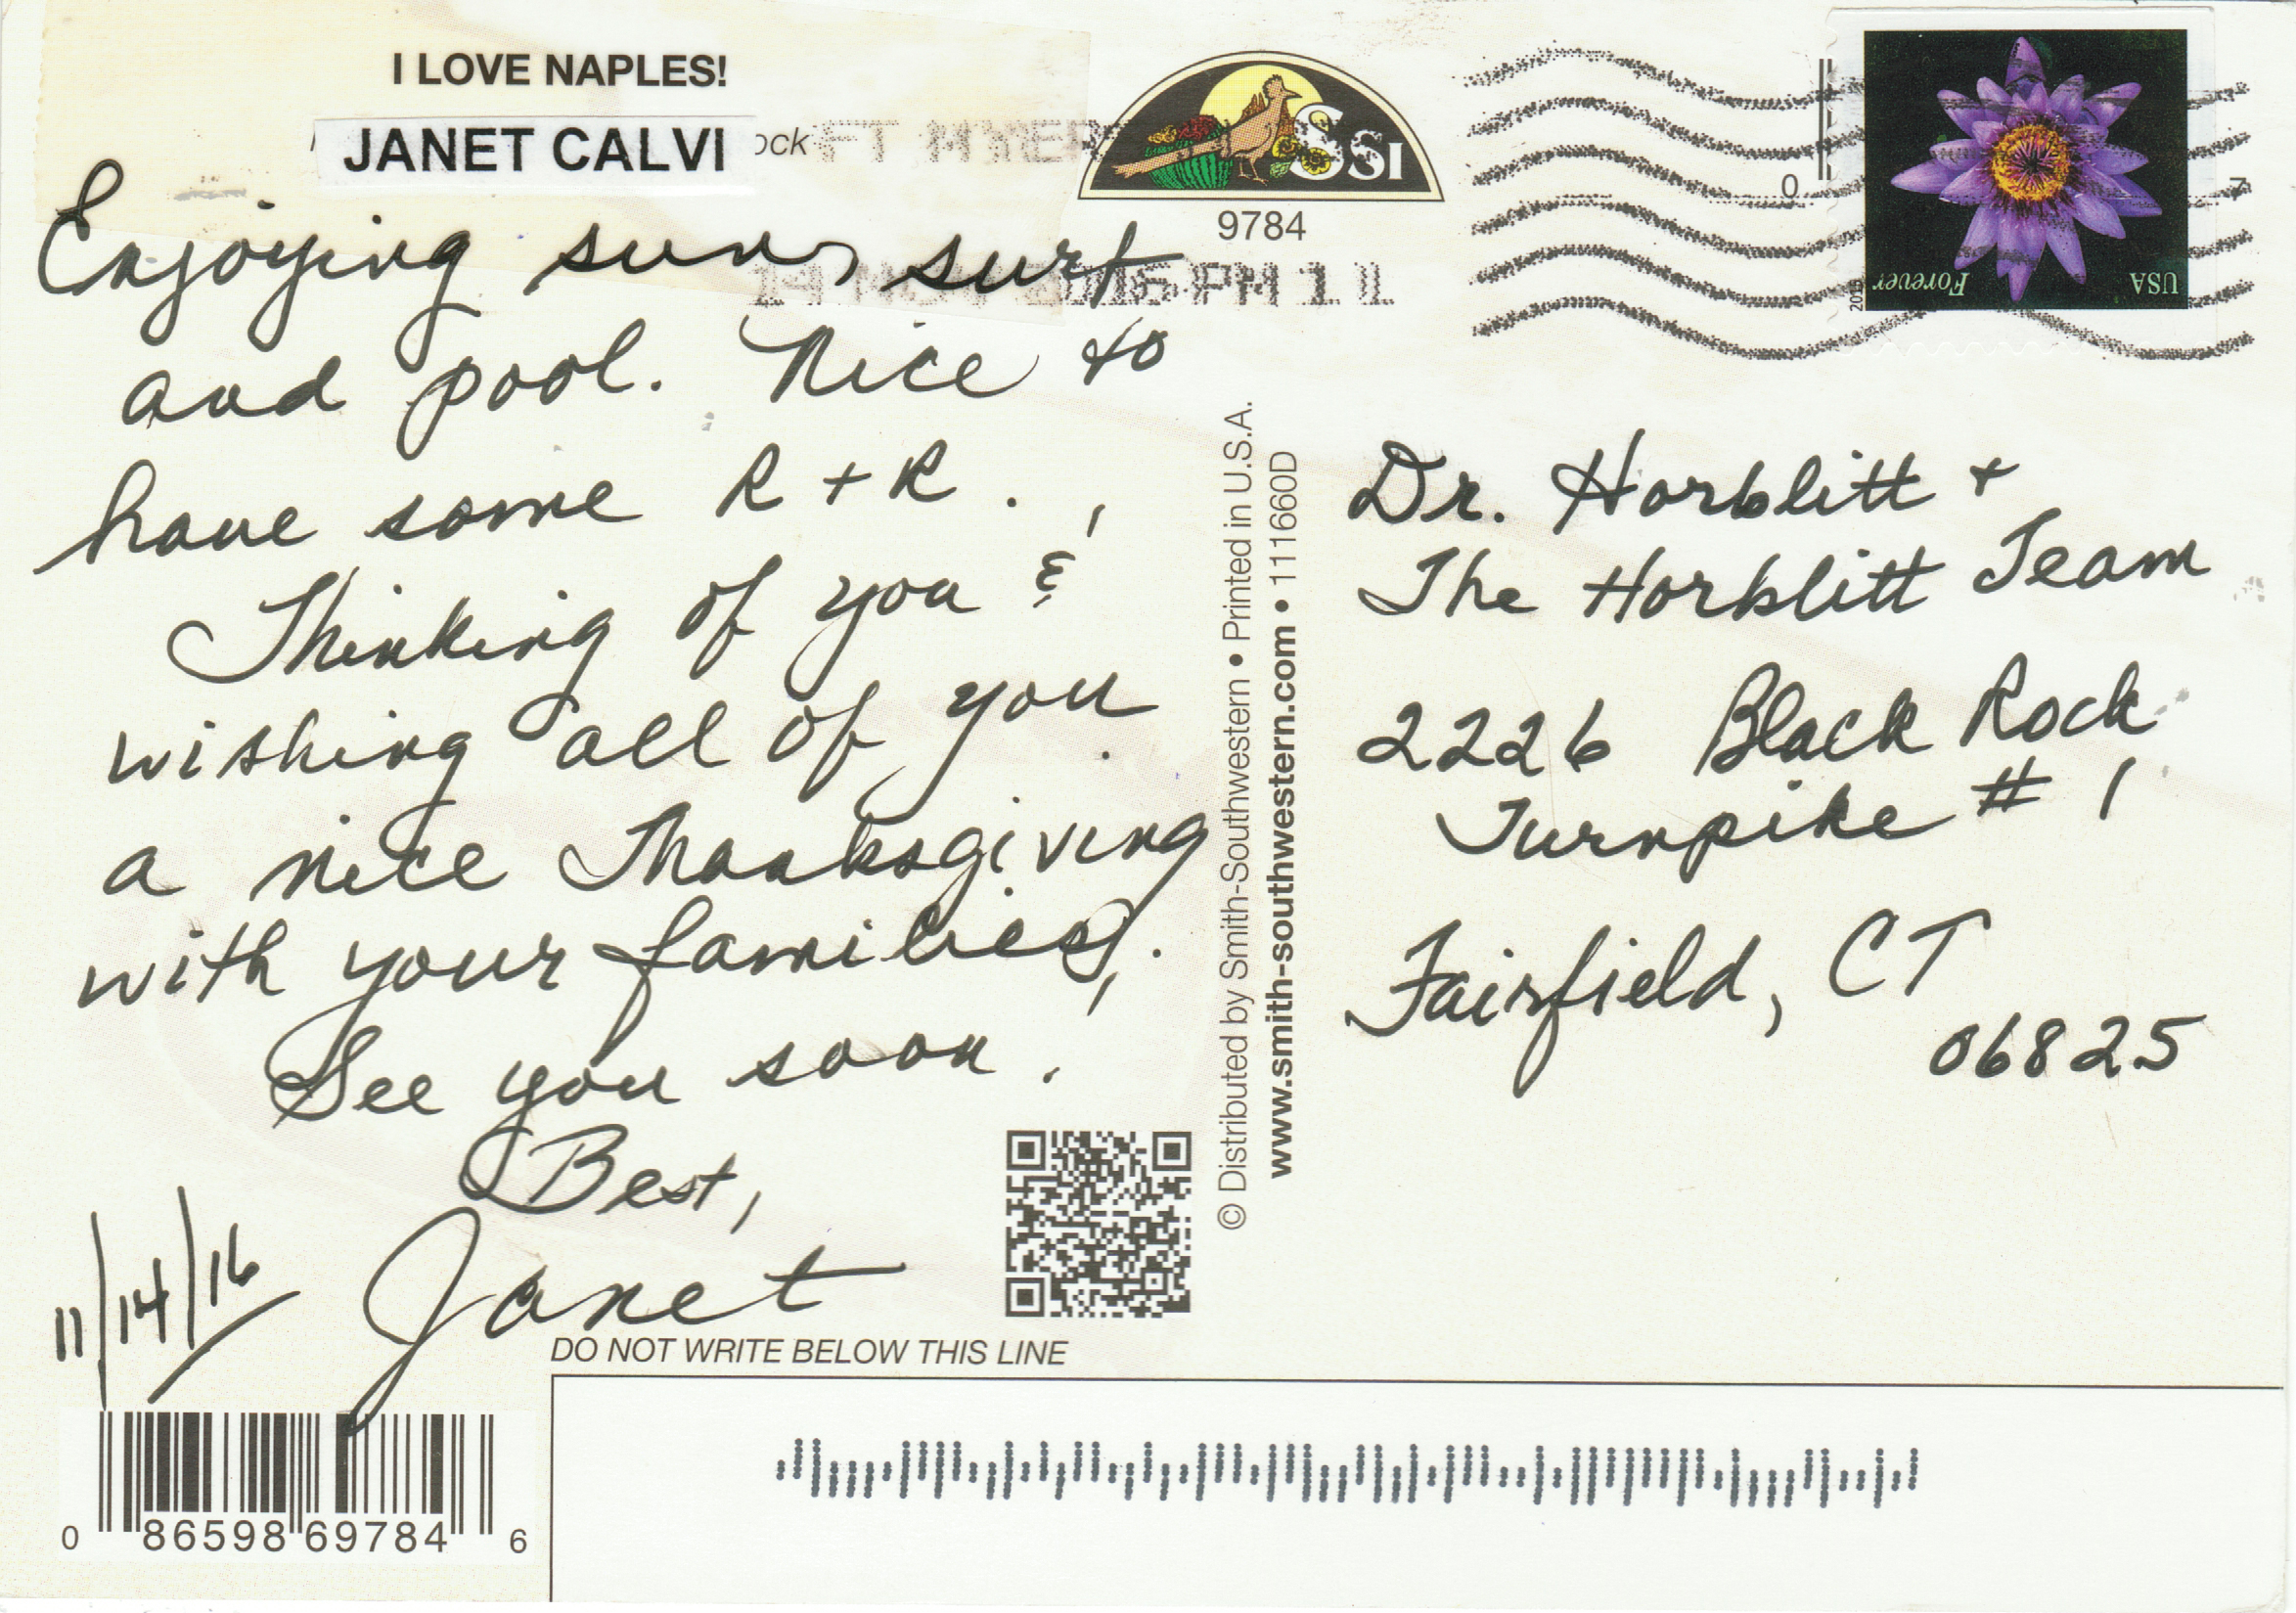 I LOVE NAPLES!
JANET CALVI
ock
FT MYERS
SSI
9784
14 NOV 2016 PM 11
Forever
USA
Enjoying sun, surf
and pool. Nice to
have some R + R.
Thinking of you &
wishing all of you
a nice Thanksgiving
with your families,.
See you soon!
Best,
Janet
11/14/16
Dr. Horblitt +
The Horblitt Team
2226 Black Rock
Turnpike # 1
Fairfield, CT
06825
© Distributed by Smith-Southwestern • Printed in U.S.A.
www.smith-southwestern.com • 111660D
DO NOT WRITE BELOW THIS LINE
0 86598 69784 6